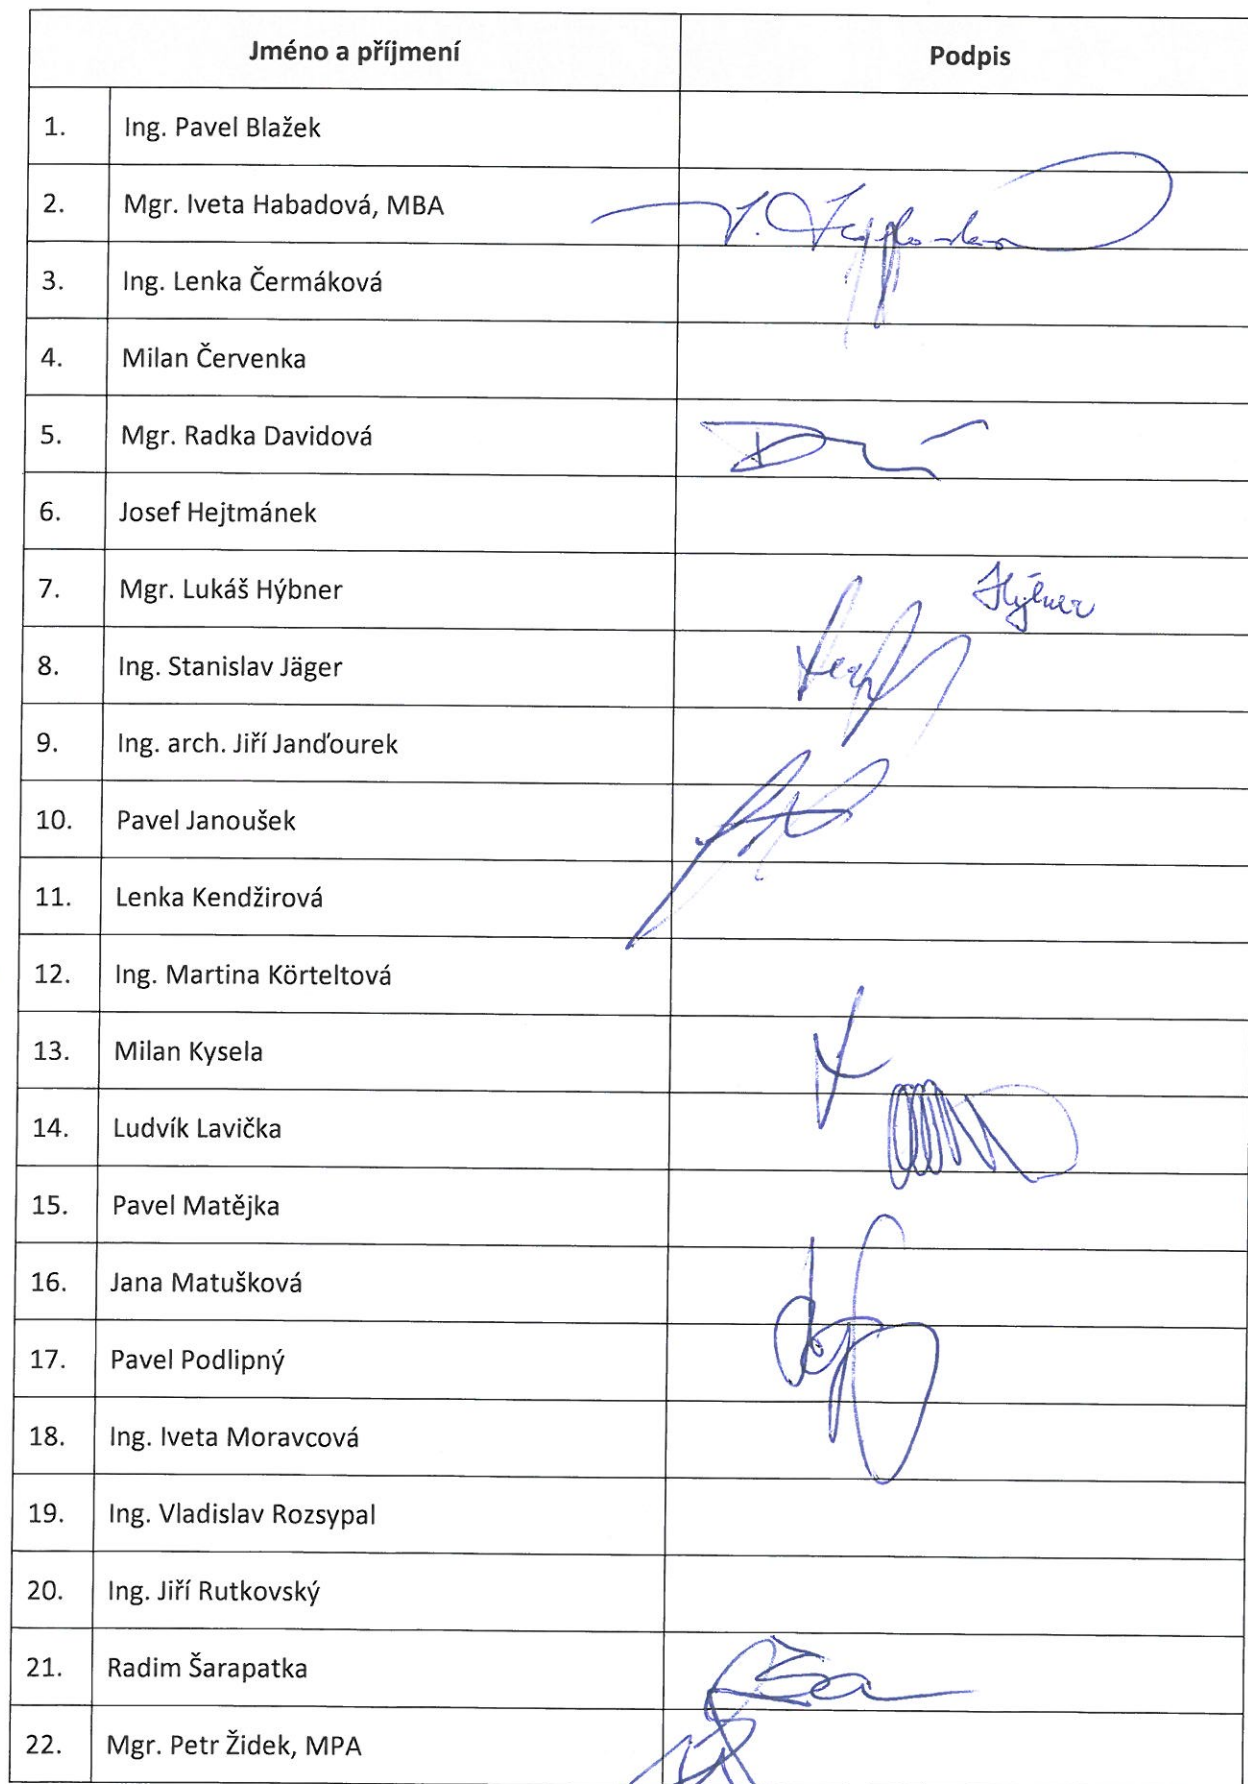 Jméno a příjmení Podpis
1. Ing. Pavel Blažek
2. Mgr. Iveta Habadová, MBA
3. Ing. Lenka Čermáková
4. Milan Červenka
5. Mgr. Radka Davidová
6. Josef Hejtmánek
7. Mgr. Lukáš Hýbner Hýbner
8. Ing. Stanislav Jäger
9. Ing. arch. Jiří Janďourek
10. Pavel Janoušek
11. Lenka Kendžirová
12. Ing. Martina Körteltová
13. Milan Kysela
14. Ludvík Lavička
15. Pavel Matějka
16. Jana Matušková
17. Pavel Podlipný
18. Ing. Iveta Moravcová
19. Ing. Vladislav Rozsypal
20. Ing. Jiří Rutkovský
21. Radim Šarapatka
22. Mgr. Petr Židek, MPA